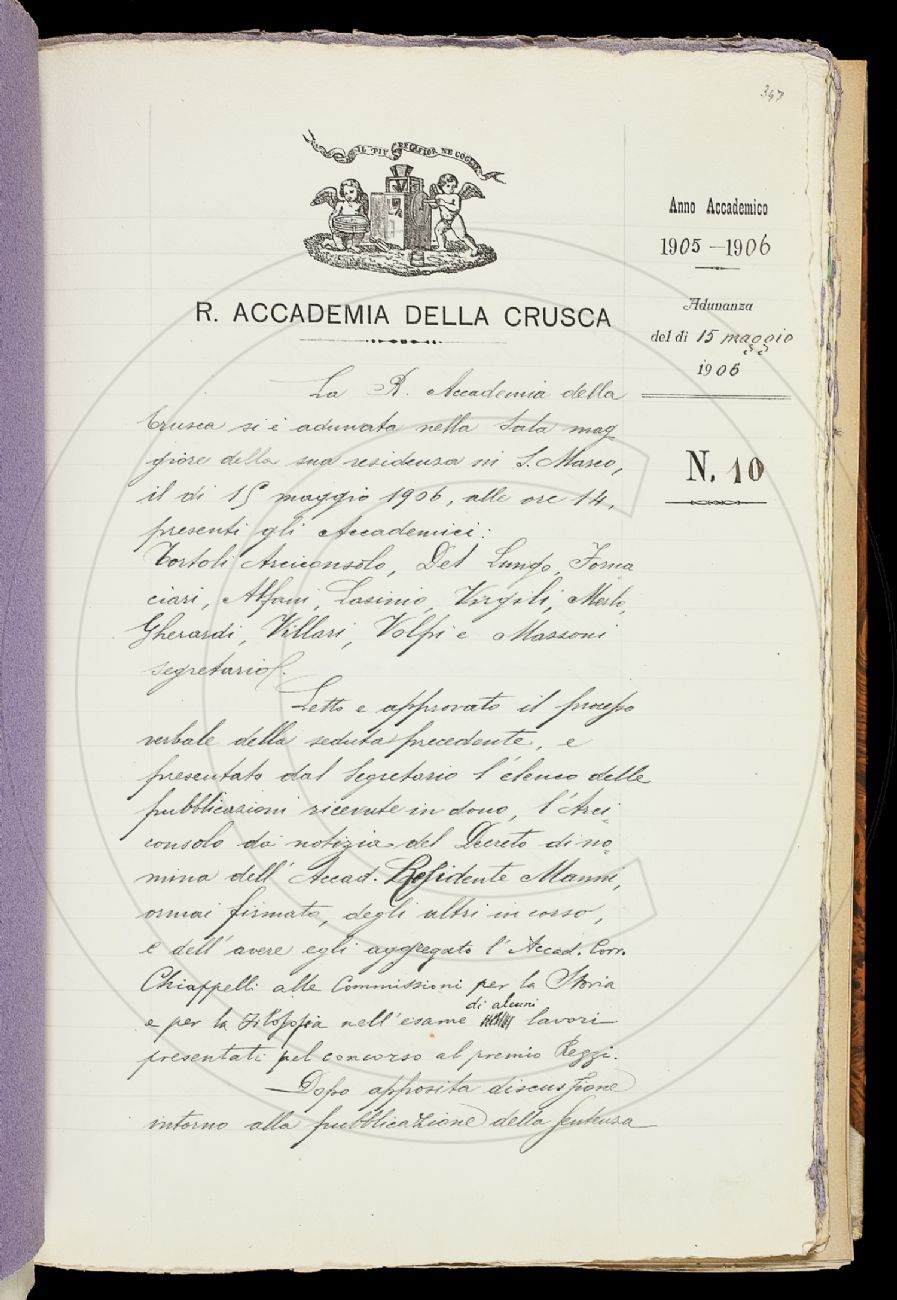 347
IL PIÙ BEL FIOR NE COGLIE
Anno Accademico
1905-1906
Adunanza
del dì 15 maggio
1906
N. 10
R. ACCADEMIA DELLA CRUSCA
La R. Accademia della
Crusca si è adunata nella Sala mag-
giore della sua residenza in S. Marco,
il dì 15 maggio 1906, alle ore 14,
presenti gli Accademici:
Tortoli Arciconsolo, Del Lungo, Forna
ciari, Alfani, Lasinio, Virgili, Merlo,
Gherardi, Villari, Volpi e Mazzoni
segretario.
Letto e approvato il processo
verbale della seduta precedente, e
presentato dal Segretario l'elenco delle
pubblicazioni ricevute in dono, l'Arci-
consolo dà notizia del Decreto di no-
mina dell'Accad. Residente Manni,
ormai firmato, degli altri in corso,
e dell'avere egli aggregato l'Accad. Corr.
Chiappelli alle Commissioni per la Storia
e per la Filosofia nell'esame di alcuni lavori
presentati pel concorso al premio Rezzi.
Dopo apposita discussione
intorno alla pubblicazione della Sentenza